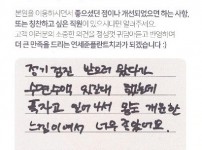 본원을 이용하시면서 좋으셨던 점이나 개선되었으면 하는 사항,
또는 칭찬하고 싶은 직원이 있으시다면 말해주세요.
고객 여러분의 소중한 의견을 정성껏 귀담아듣고 반영하여
더 큰 만족을 드리는 연세준플란트치과가 되겠습니다 :)
정기 검진 받으러 왔다가
음악
틀고 있어서 뭔가 개운한
느낌이에서 너무 좋았어요.